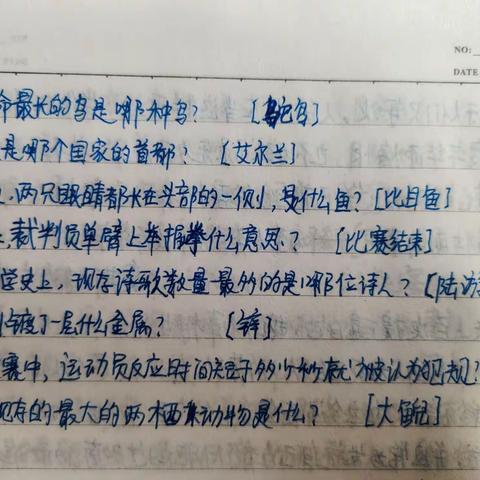 NO:
DATE
命最长的鸟是哪种鸟? [鸵鸟]
是哪个国家的首都? [艾尔兰]
两只眼睛都长在头部的一侧,是什么鱼? [比目鱼]
裁判员单臂上举握拳什么意思? [比赛结束]
学史上,现存诗歌数量最多的是哪位诗人? [陆游
镀了一层什么金属? [锌]
赛中,运动员反应时间短于多少秒就被认为犯规?
现存的最大的两栖动物是什么? [大鲵]